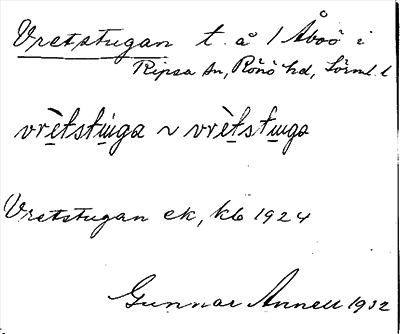 Vretstugan t. å 1 Åboö i
Ripsa sn, Rönö hd, Sörml. l
vrètstùga ~ vrètstuga
Vretstugan ek, kb 1924
Gunnar Annell 1932